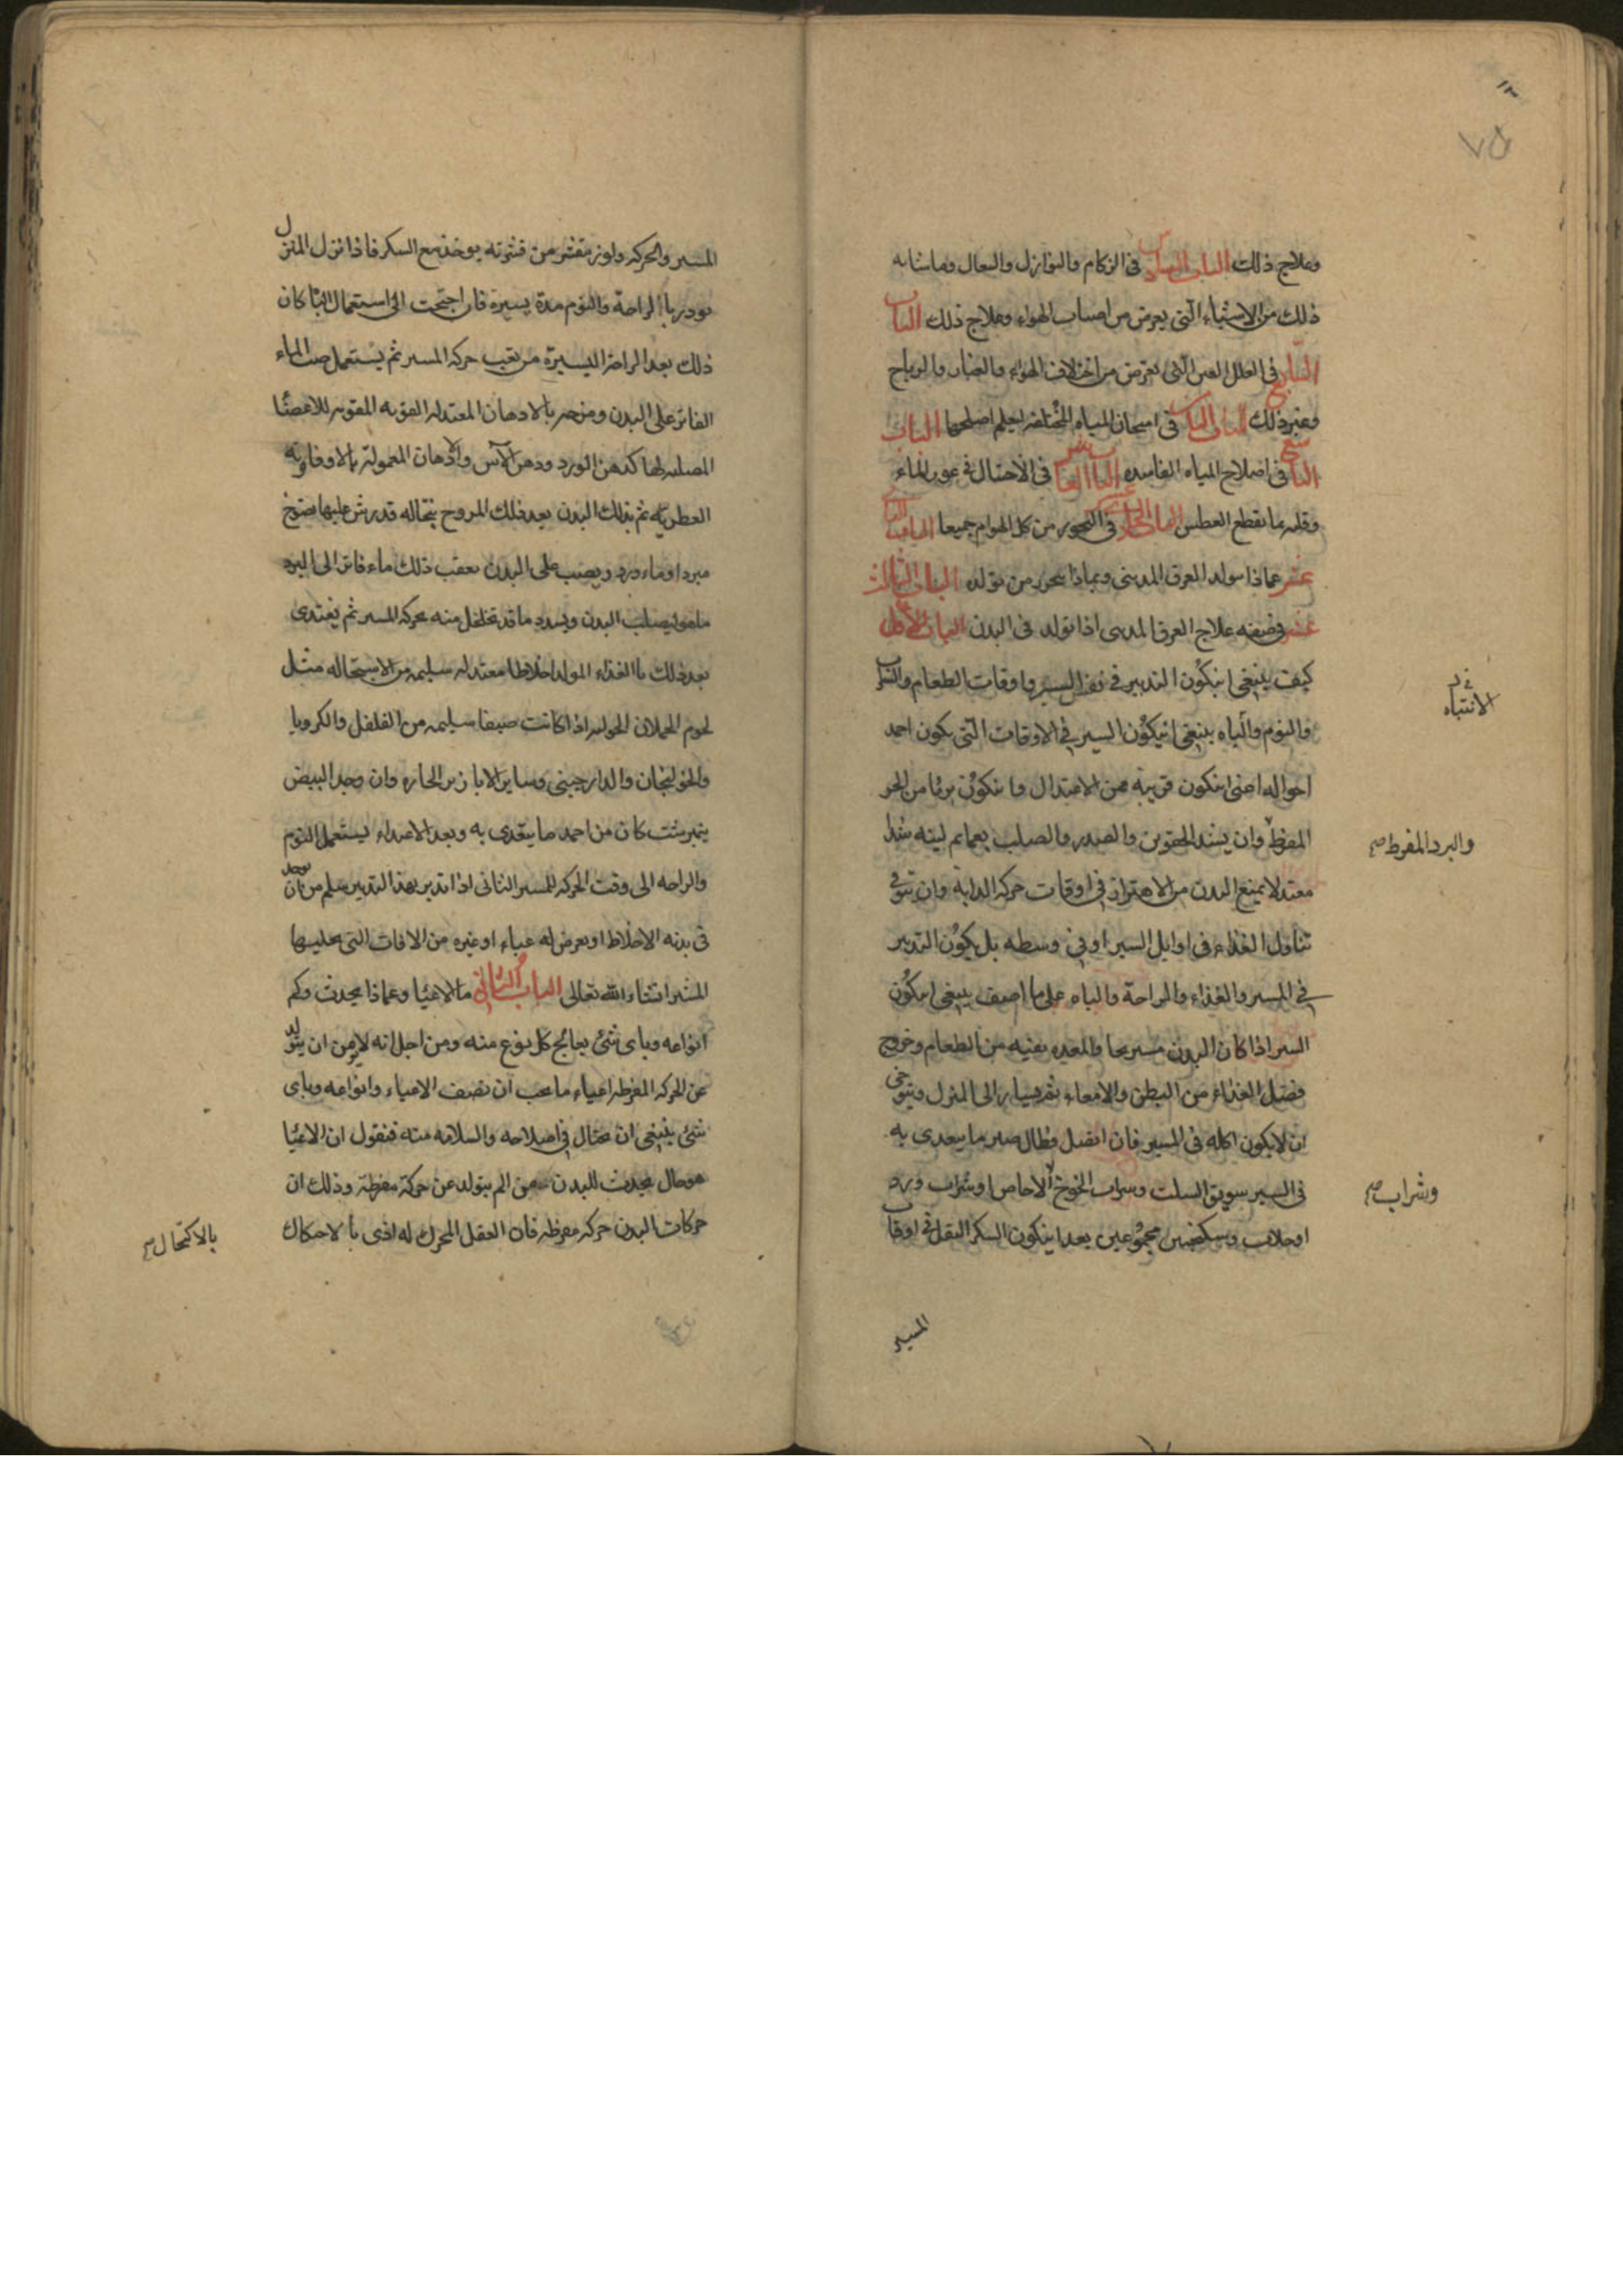 ٧٥
وعلاج ذلك الباب السادس فى الزكام والنوازل والسعال وما شابه
ذلك من الاشياء التى يعرض من اصناف الهواء وعلاج ذلك الباب
السابع فى العلل العين التى تعرض من اختلاف الهواء والغبار والرياح
وغير ذلك الباب الثامن فى امتحان المياه المختلفة ليعلم اصلحها الباب
التاسع فى اصلاح المياه الفاسده الباب العاشر فى الاحتيال فى عوز الماء
وقلته بما يقطع العطش الباب الحادى عشر فى التحرز من كل الهوام جميعا الباب الثانى
عشر عماذا يتولد العرق المدينى وبماذا يتحرز من تولده الباب الثالث
عشر فى صفه علاج العرق المدينى اذا تولد فى البدن الباب الاول
كيف ينبغى ان يكون التدبير فى نفس السير واوقات الطعام والشراب
والنوم والباه ينبغى ان يكون السير فى الاوقات التى يكون احمد
فى
الانتباه
احواله اعنى ان يكون قريبة من الاعتدال وان يكون بريا من الحر
المفرط وان يشد الحقوين والصدر والصلب بعمايم لينه شدا
والبرد المفرط صح
معتدلا يمنع البدن من الاهتزاز فى اوقات حركه الدابة وان يتوقى
تناول الغذاء فى اوايل السير او فى وسطه بل يكون التدبير
فى المسير والغذاء والراحة والباه على ما اصف ينبغى ان يكون
السير اذا كان البدن مستريحا والمعده نقيه من الطعام وخروج
فضل الغذاء من البطن والامعاء ثم يسار الى المنزل ويتوخى
ان لا يكون اكله فى المسير فان اتصل وطال صير ما يتغدى به
فى السير سويق السلت وشراب الخوخ الاجاص او شراب ورد
وشراب صح
او جلاب وسكنجبين مجموعين بعد ان يكون السكر اثقل فى اوقات
المسير
المسير والحركه ولوز مقشر من قشرته يوخذ مع السكر فاذا نزل المنزل
بودر بالراحة والنوم مدة يسيرة فان احتجت الى استعمال الباه كان
ذلك بعد الراحة اليسيرة من تعب حركه المسير ثم يستعمل صب الماء
الفاتر على البدن ومزجه بالادهان المعتدله القويه المقويه للاعضا
المصلبه لها كدهن الورد ودهن الآس والادهان المعموله بالافاويه
العطريه ثم يدلك البدن بعد ذلك المروح بنخاله قد رش عليها نضوح
مبرد او ماء ورد ويصب على البدن بعقب ذلك ماء فاتر الى البرد
ما هو ليصلب البدن ويسدد ما قد تخلخل منه بحركه المسير ثم يغتدى
بعد ذلك بالغذاء المولد اخلاطا معتدله سليمه من الاستحاله مثل
لحوم الحملان الحوليه اذا كانت صيفا سليمه من الفلفل والكرويا
والخولنجان والدارجينى وساير الابازير الحاره وان وجد البيض
نيمبرشت كان من احمد ما يتغدى به وبعد الاغتداء يستعمل النوم
والراحه الى وقت الحركه للمسير الثانى اذا تدبر بهذا التدبير سلم من ان يوجد
فى بدنه الاخلاط او يعرض له عياء او غيره من الافات التى يجلبها
المسير انشاء الله تعالى الباب الثانى ما الاعيا وعماذا يحدث وكم
انواعه وباى شئ يعالج كل نوع منه ومن اجل انه لا يومن ان يتولد
عن الحركه المفرطه اعياء ما يجب ان نصف الاعياء وانواعه وباى
شئ ينبغى ان يحتال فى اصلاحه والسلامه منه فنقول ان الاعيا
هو حال يحدث للبدن من الم يتولد عن حركة مفرطة وذلك ان
حركات البدن حركه مفرطه فان العقل المحرك له اذى بالاحتكاك
بالاكتحال صح